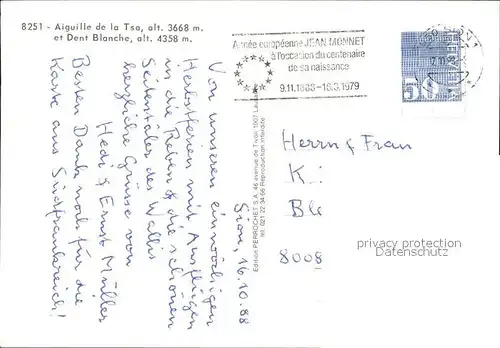 8251 - Aiguille de la Tsa, alt. 3668 m.
et Dent Blanche, alt. 4358 m.
Année européenne JEAN MONNET
à l'occasion du centenaire
de sa naissance
9.11.1888-16.3.1979
HELVETIA
50
Sion, 16.10.88
Von unseren einwöchigen
Herbstferien mit Ausflügen
in die Reben & die schönen
Seitentäler des Wallis
herzliche Grüsse von
Hedi & Ernst Müller
Besten Dank noch für die
Karte aus Südfrankreich!
Edition PERROCHET S.A. 46 avenue de Tivoli 1007 Lausanne
tél. 021 22 34 66 Reproduction interdite
Herrn & Frau
K.
Ble
8008
privacy protection
Datenschutz